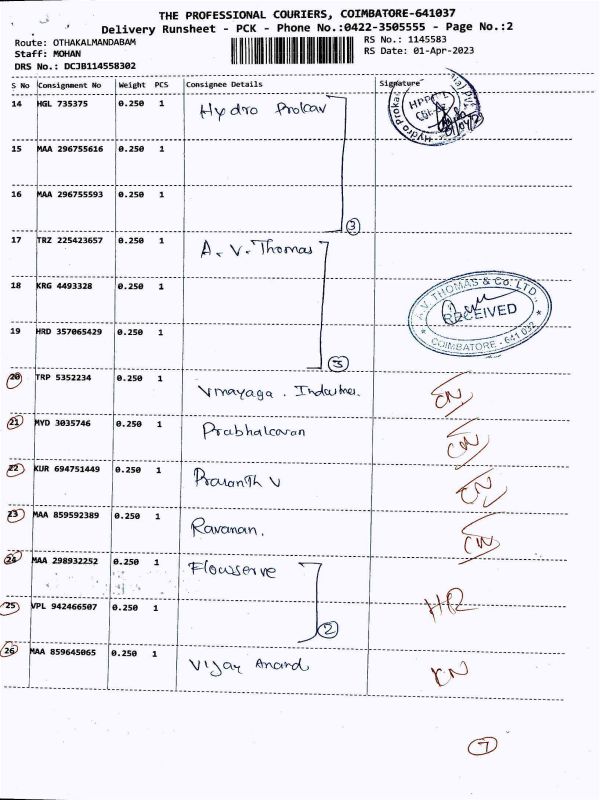 THE PROFESSIONAL COURIERS, COIMBATORE-641037
Delivery Runsheet - PCK - Phone No.:0422-3505555 - Page No.:2
Route: OTHAKALMANDABAM
RS No.: 1145583
Staff: MOHAN
RS Date: 01-Apr-2023
DRS No.: DCJB114558302
S No Consignment No Weight PCS Consignee Details Signature
14 HGL 735375 0.250 1 Hydro Prokav
15 MAA 296755616 0.250 1
16 MAA 296755593 0.250 1
3
17 TRZ 225423657 0.250 1 A. V. Thomas
18 KRG 4493328 0.250 1
A.V. THOMAS & Co. LTD.,
RECEIVED
COIMBATORE - 641 032
19 HRD 357065429 0.250 1
3
20 TRP 5352234 0.250 1 Vinayaga. Industries. CN
21 MYD 3035746 0.250 1 Prabhakaran CN
22 KUR 694751449 0.250 1 Prasanth V CN
23 MAA 859592389 0.250 1 Ravanan. CN
24 MAA 298932252 0.250 1 Flowserve
25 VPL 942466507 0.250 1
2
26 MAA 859645065 0.250 1 Vijay Anand
7